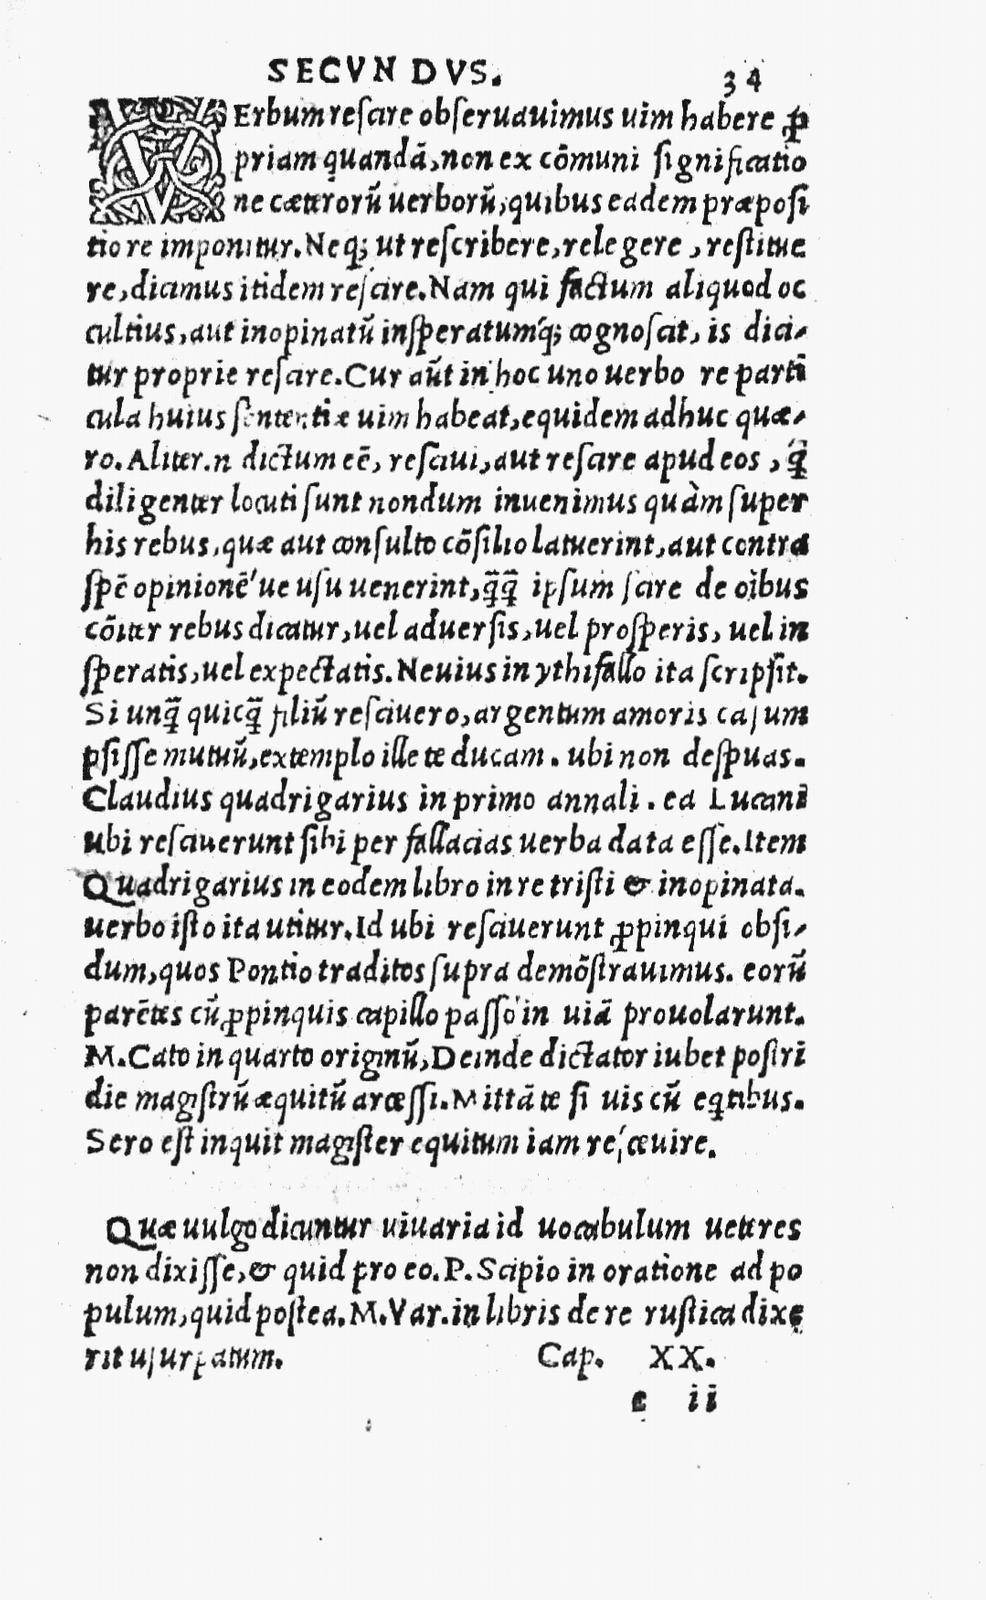 SECVNDVS. 34
VErbum rescire obseruauimus uim habere ꝓ
priam quandā, non ex cōmuni significatio
ne cæterorũ uerborũ, quibus eadem præposi
tio re imponitur. Neq; ut rescribere, relegere, restitue
re, dicimus itidem rescire. Nam qui factum aliquod oc
cultius, aut inopinatũ insperatumq́; cognoscit, is dici-
tur proprie rescire. Cur aũt in hoc uno uerbo re parti
cula huius sententiæ uim habeat, equidem adhuc quæ-
ro. Aliter.n dictum eē, resciui, aut rescire apud eos, q̃
diligenter locuti sunt nondum inuenimus quàm super
his rebus, quæ aut consulto cōsilio latuerint, aut contra
spē opinionē'ue usu uenerint, q̃q̃ ipsum scire de oĩbus
cōiter rebus dicatur, uel aduersis, uel prosperis, uel in
speratis, uel expectatis. Neuius in ythifallo ita scripsit.
Si unq̃ quicq̃ filiũ resciuero, argentum amoris casum
psisse mutuũ, extemplo ille te ducam. ubi non despuas.
Claudius quadrigarius in primo annali. ea Lucani
ubi resciuerunt sibi per fallacias uerba data esse. Item
Quadrigarius in eodem libro in re tristi & inopinata.
uerbo isto ita utitur. Id ubi resciuerunt ꝓpinqui obsi-
dum, quos Pontio traditos supra demōstrauimus. eorũ
parētes cũ ꝓpinquis capillo passo in uiā prouolarunt.
M. Cato in quarto originũ, Deinde dictator iubet postri
die magistrũ æquitũ arcessi. Mittā te si uis cũ eqtibus.
Sero est inquit magister equitum iam resceuire.
Quæ uulgo dicuntur uiuaria id uocabulum ueteres
non dixisse, & quid pro eo. P. Scipio in oratione ad po
pulum, quid postea. M. Var. in libris de re rustica dixe
rit usurpatum. Cap. XX.
e ii